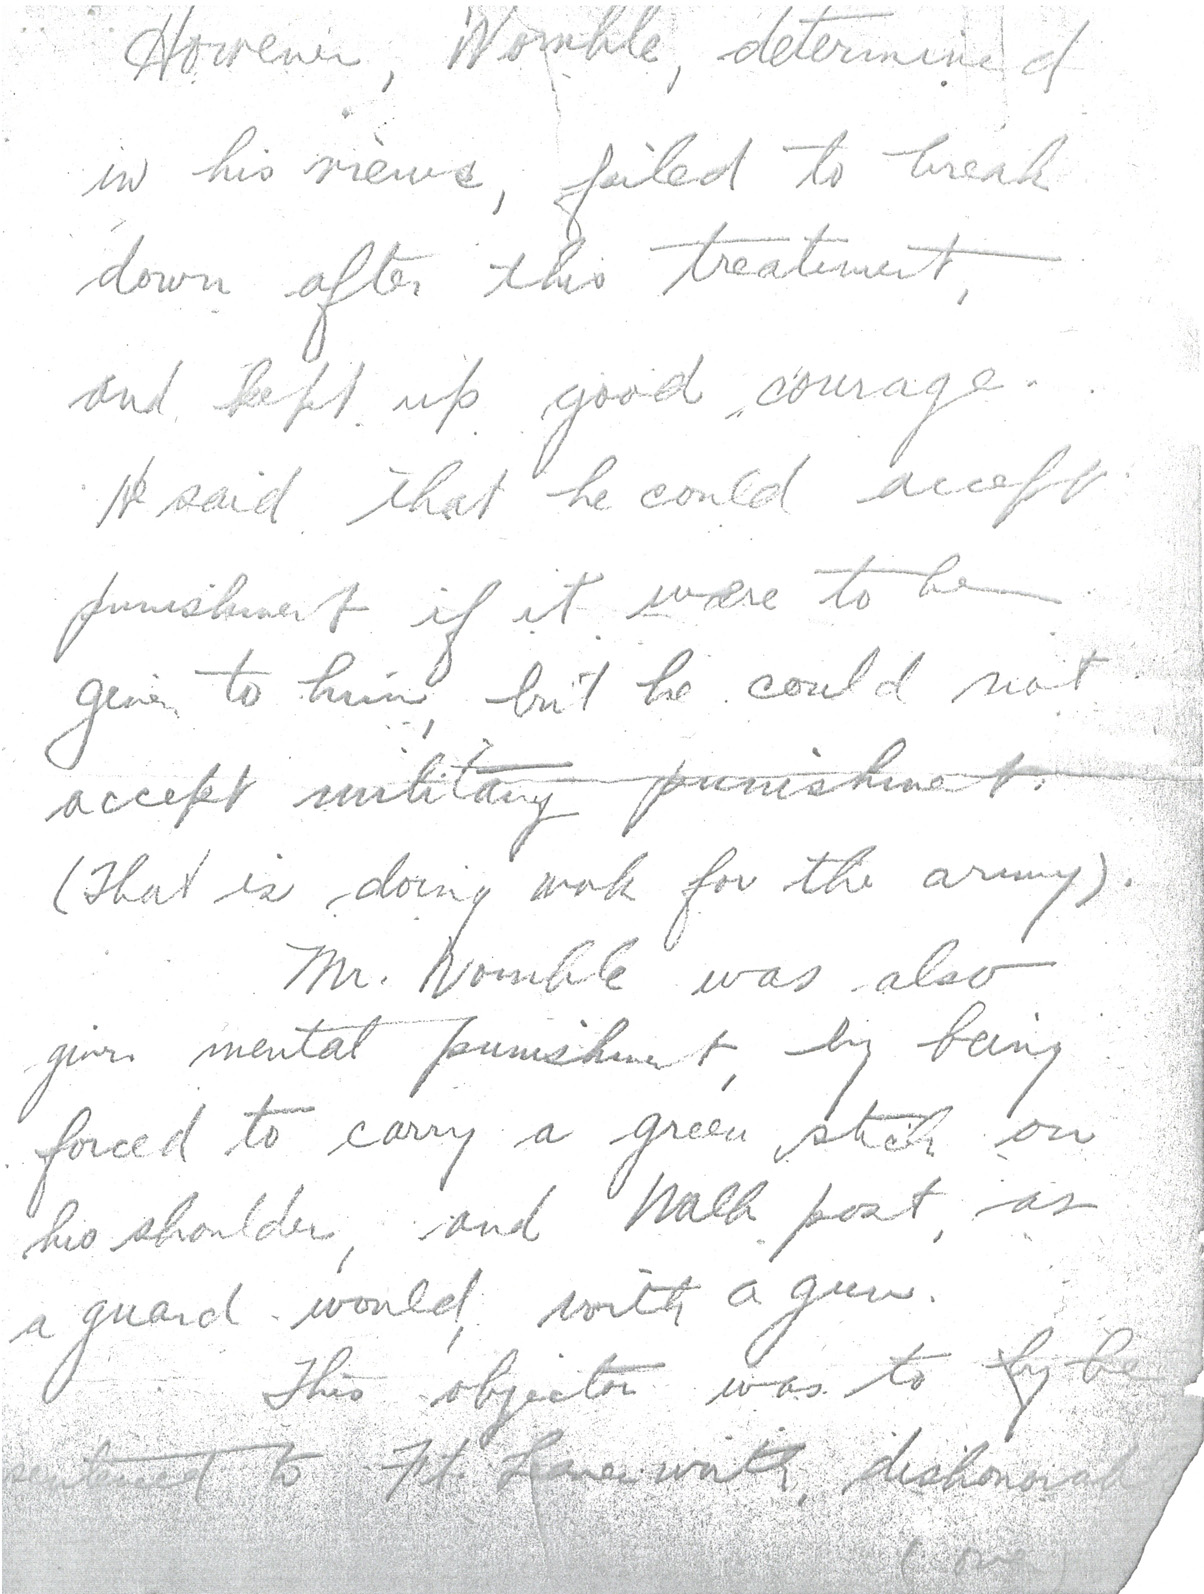 However, Womble, determined
in his views, failed to break
down after this treatment,
and kept up good courage.
He said that he could accept
punishment if it were to be
given to him, but he could not
accept military punishment.
(That is doing work for the army).
Mr. Womble was also
given mental punishment, by being
forced to carry a green stick on
his shoulder, and walk post, as
a guard would, with a gun.
This objector was to by be
sentenced to Ft. Leavenworth, dishonorabl
(over)